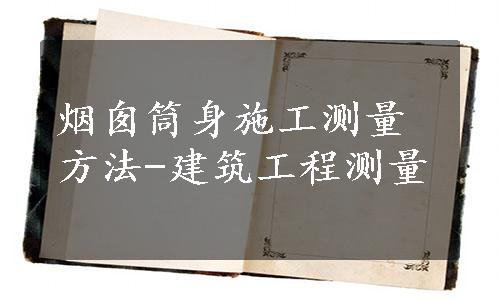 烟囱筒身施工测量
方法-建筑工程测量